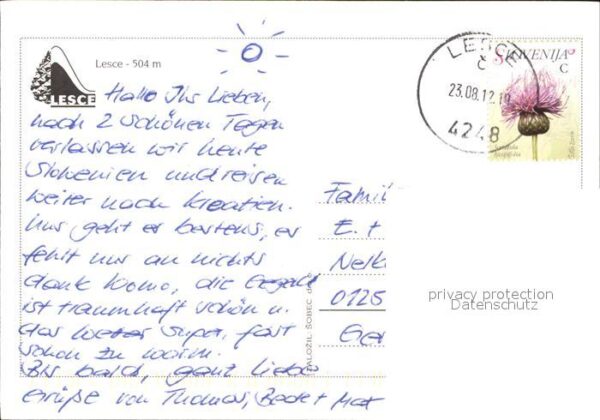 Lesce - 504 m
LESCE
Hallo Ihr Lieben,
nach 2 schönen Tagen
verlassen wir heute
Slowenien und reisen
weiter nach Kroatien.
Uns geht es bestens, es
fehlt nur an nichts
dank Womo, die Gegend
ist traumhaft schön u.
das Wetter super, fast
schon zu warm.
Bis bald, ganz liebe
Grüße von Thomas, Beate + Max
LESCE
Č
23.08.12.19
4248
SLOVENIJA
C
Famil
E. +
Nelk
0125
Ger
ZALOŽIL ŠOBEC d
privacy protection
Datenschutz